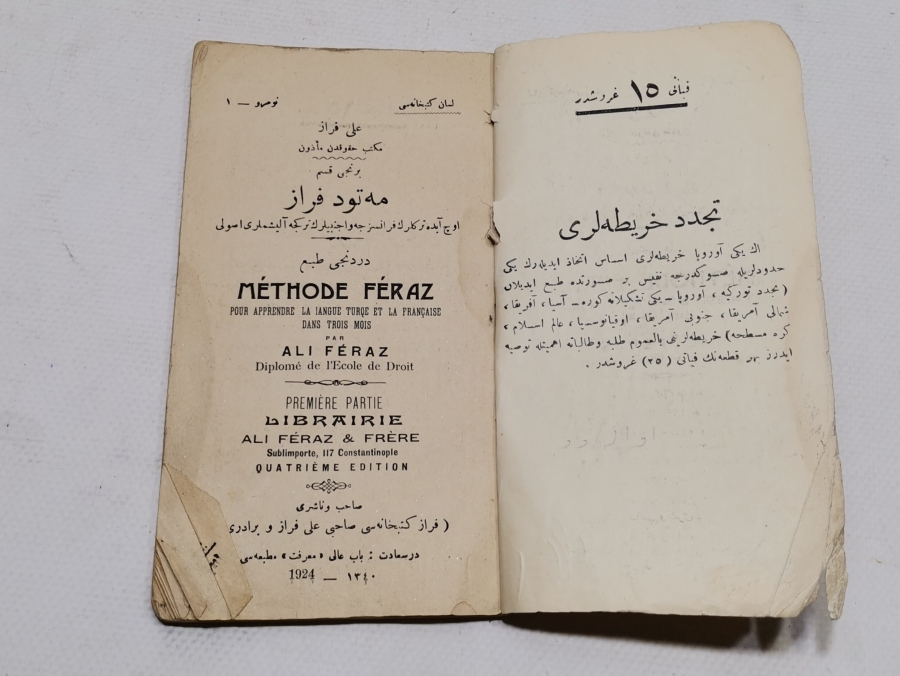 لسان كتبخانه‌سی
نومرو — ١
علی فراز
مكتب حقوقدن مأذون
برنجی قسم
مه‌تود فراز
اوچ آیده تركلرك فرانسزجه و اجنبیلرك تركجه آلیشملری اصولی
دردنجی طبع
MÉTHODE FÉRAZ
POUR APPRENDRE LA LANGUE TURQE ET LA FRANÇAISE
DANS TROIS MOIS
PAR
ALI FÉRAZ
Diplomé de l'Ecole de Droit
PREMIÈRE PARTIE
LIBRAIRIE
ALI FÉRAZ & FRÈRE
Sublimporte, 117 Constantinople
QUATRIÈME EDITION
صاحب و ناشری
( فراز كتبخانه‌سی صاحبی علی فراز و برادری
درسعادت : باب عالی «معرفت» مطبعه‌سی
1924 — ١٣٤٠
فیئاتی ١٥ غروشدر
تجدد خریطه‌لری
اك یكی آوروپا خریطه‌لری اساس اتخاذ ایدیله‌رك یكی
حدودلریله صوكدرجه نفیس بر صورتده طبع ایدیلان
(تجدد توركیه ، آوروپا – یكی تشكیلاته كوره – آسیا ، آفریقا ،
شمالی آمریقا ، جنوبی آمریقا ، اوقیانوسیا ، عالم اسلام ،
كره مسطحه) خریطه‌لرینی بالعموم طلبه و طالباته اهمیتله توصیه
ایدرز بهر قطعه‌نك فیئاتی (٢٥) غروشدر .